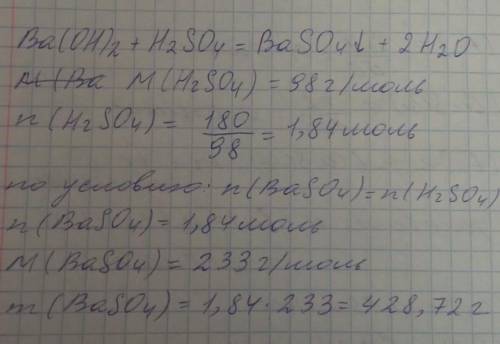 Ba(OH)2 + H2SO4 = BaSO4↓ + 2H2O
M(H2SO4) = 98 г/моль
n(H2SO4) = 180/98 = 1,84 моль
по условию: n(BaSO4) = n(H2SO4)
n(BaSO4) = 1,84 моль
M(BaSO4) = 233 г/моль
m(BaSO4) = 1,84 · 233 = 428,72 г